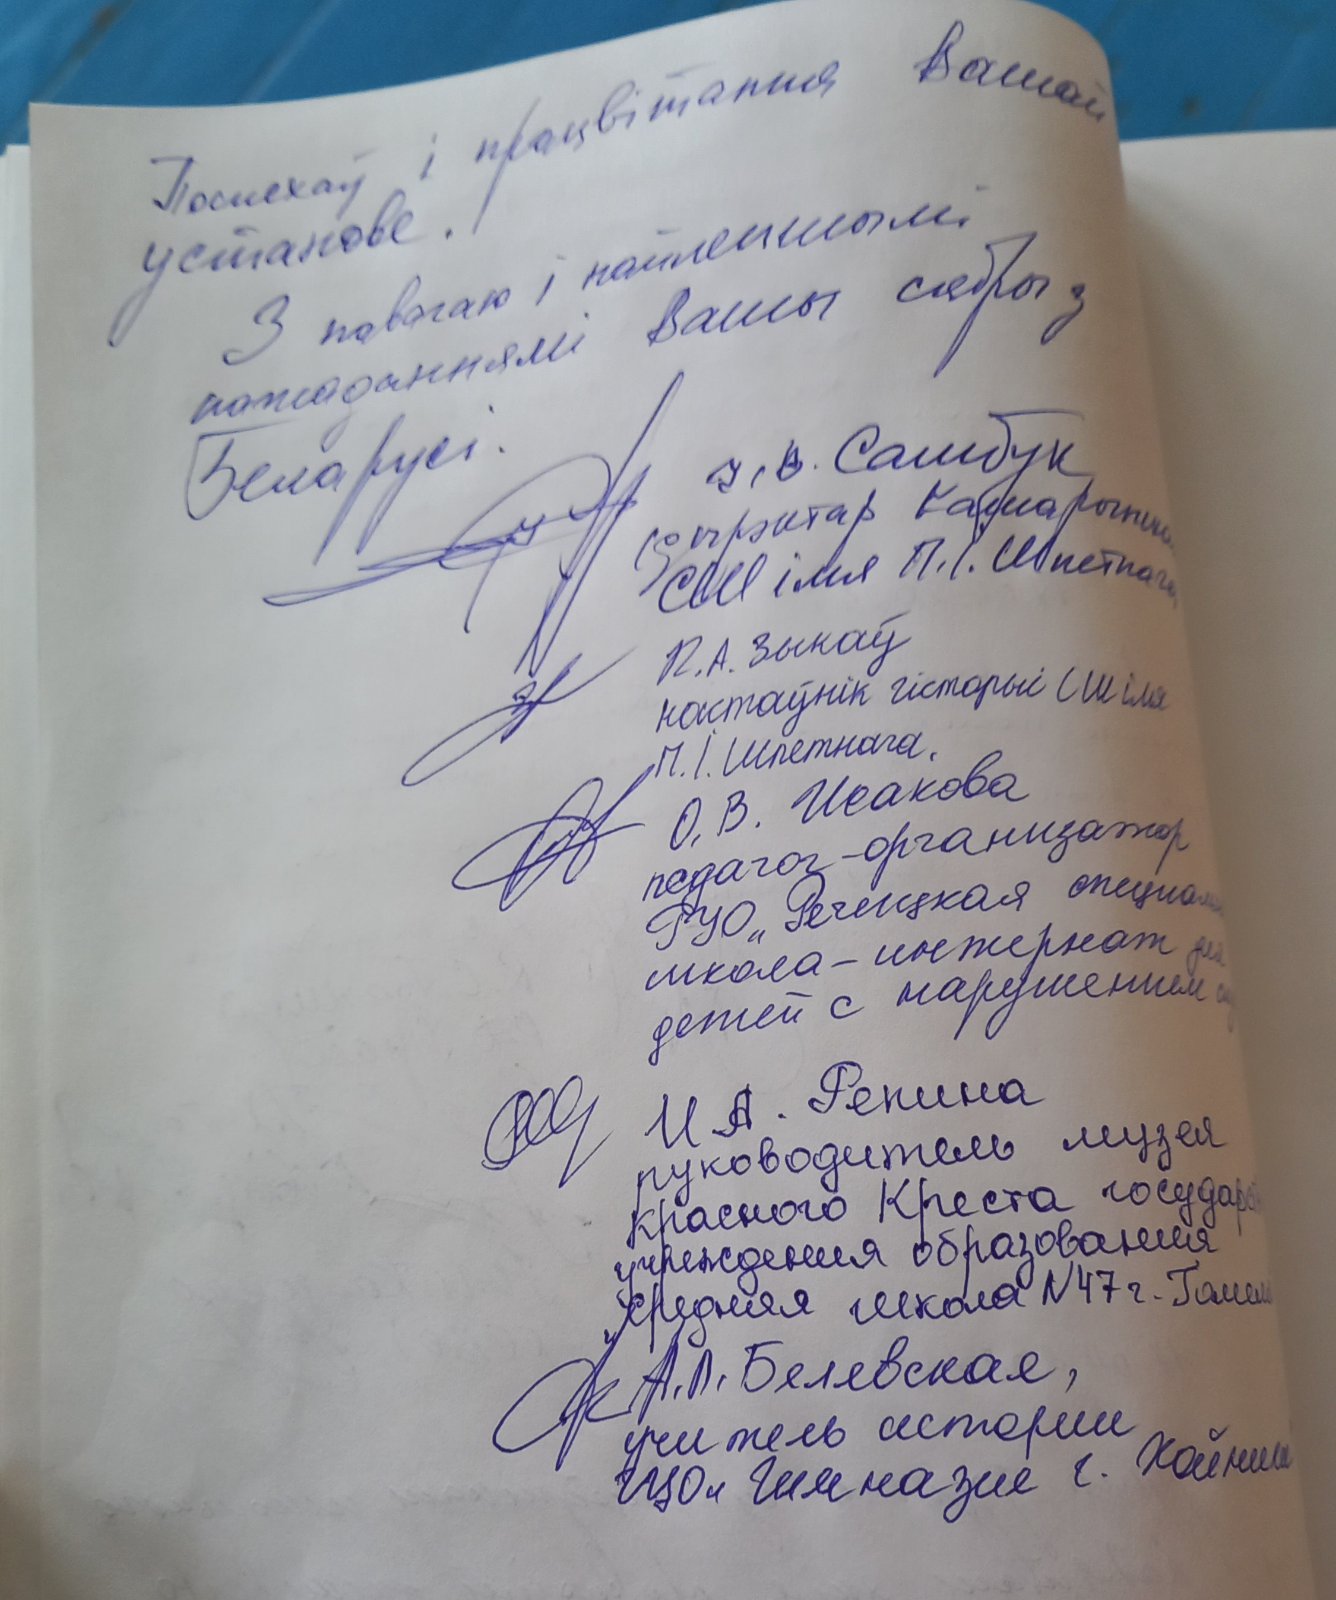 Поспехаў і працвітання Вашай
установе.
З павагаю і найлепшымі
пажаданнямі Вашы сябры з
Беларусі.
Самбук
дырэктар
СШ імя П.І. Шпетнага,
П.А. Зыкаў
настаўнік гісторыі СШ імя
П.І. Шпетнага.
О.В. Исакова
педагог-организатор
ГУО „Речицкая
школа-интернат для
детей с нарушением
И.А. Репина
руководитель музея
Красного Креста
учреждения образования
„Средняя школа N47 г.
А.Л. Белевская,
учитель истории
Гимназия г.